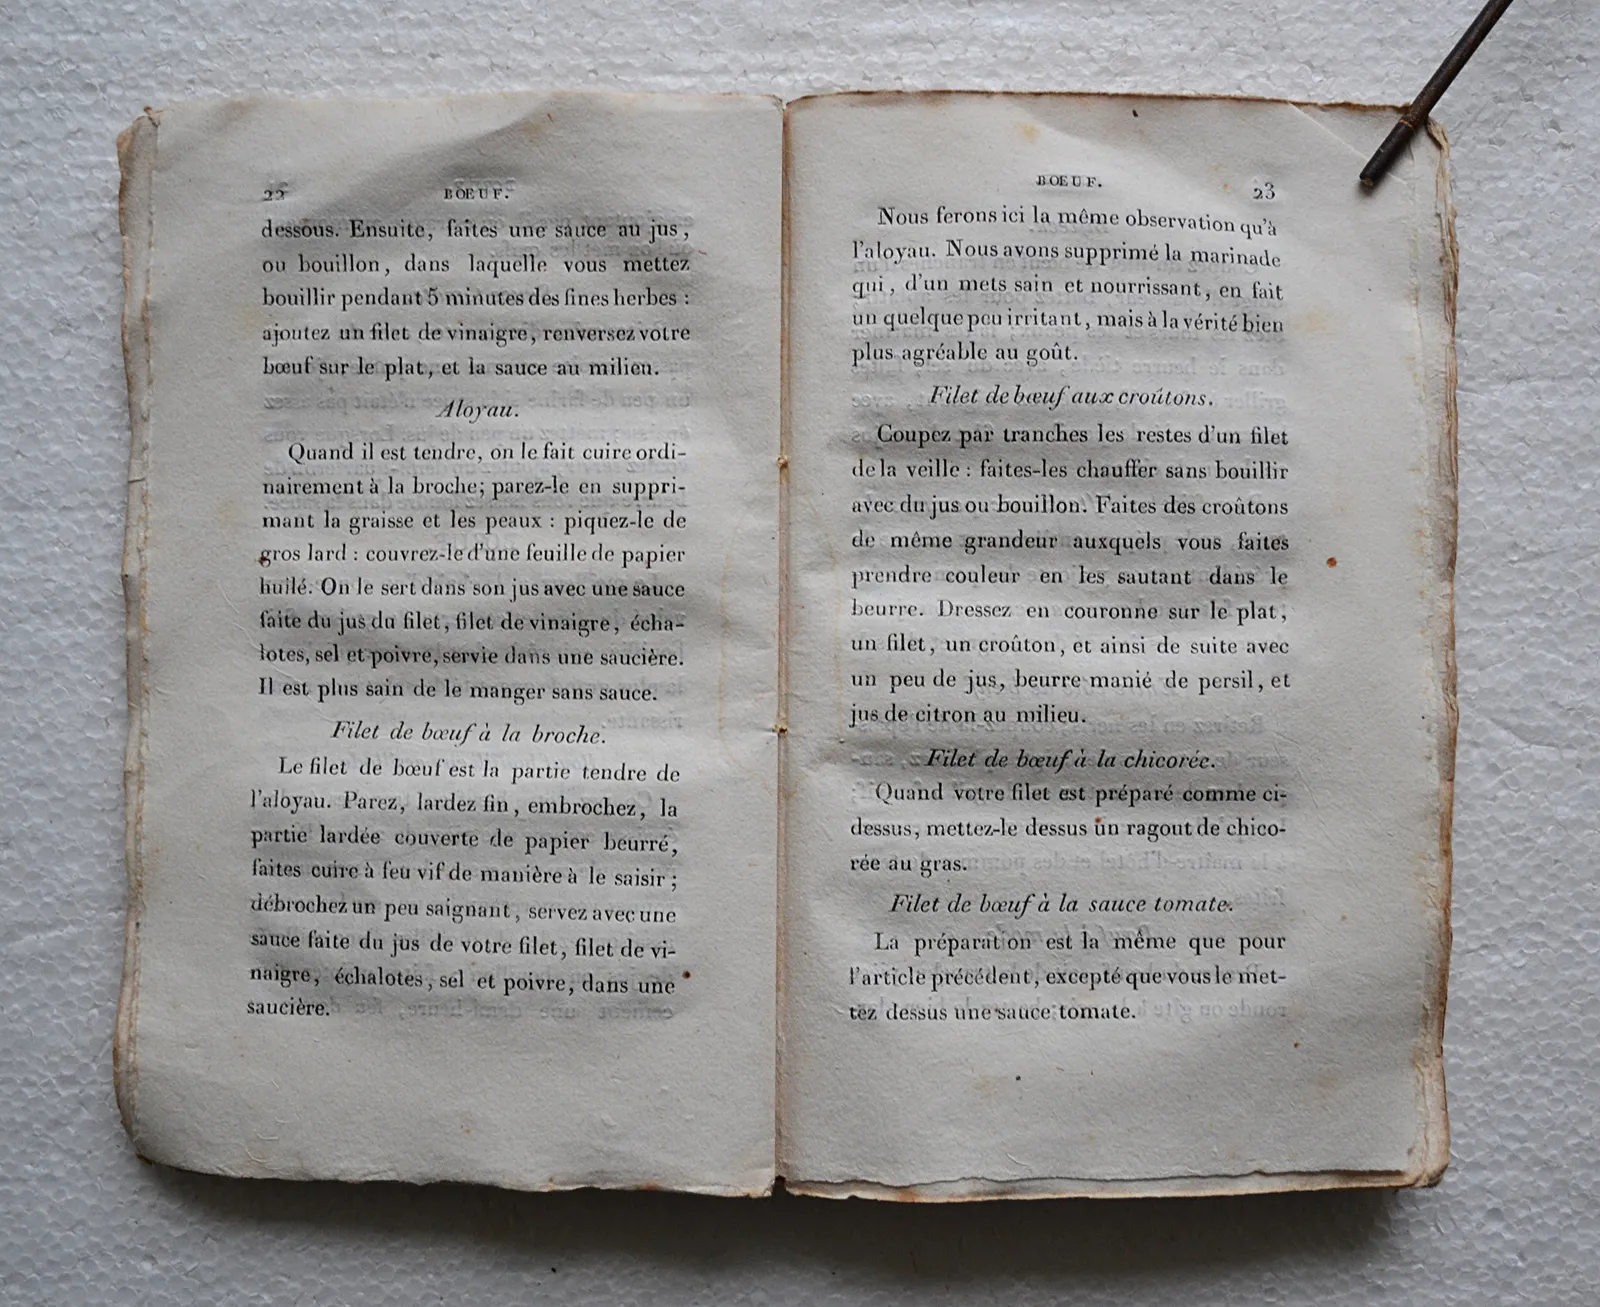 22 BŒUF.
dessous. Ensuite, faites une sauce au jus,
ou bouillon, dans laquelle vous mettez
bouillir pendant 5 minutes des fines herbes :
ajoutez un filet de vinaigre, renversez votre
bœuf sur le plat, et la sauce au milieu.
Aloyau.
Quand il est tendre, on le fait cuire ordi-
nairement à la broche; parez-le en suppri-
mant la graisse et les peaux : piquez-le de
gros lard : couvrez-le d'une feuille de papier
huilé. On le sert dans son jus avec une sauce
faite du jus du filet, filet de vinaigre, écha-
lotes, sel et poivre, servie dans une saucière.
Il est plus sain de le manger sans sauce.
Filet de bœuf à la broche.
Le filet de bœuf est la partie tendre de
l'aloyau. Parez, lardez fin, embrochez, la
partie lardée couverte de papier beurré,
faites cuire à feu vif de manière à le saisir ;
débrochez un peu saignant, servez avec une
sauce faite du jus de votre filet, filet de vi-
naigre, échalotes, sel et poivre, dans une
saucière.
BŒUF. 23
Nous ferons ici la même observation qu'à
l'aloyau. Nous avons supprimé la marinade
qui, d'un mets sain et nourrissant, en fait
un quelque peu irritant, mais à la vérité bien
plus agréable au goût.
Filet de bœuf aux croûtons.
Coupez par tranches les restes d'un filet
de la veille : faites-les chauffer sans bouillir
avec du jus ou bouillon. Faites des croûtons
de même grandeur auxquels vous faites
prendre couleur en les sautant dans le
beurre. Dressez en couronne sur le plat,
un filet, un croûton, et ainsi de suite avec
un peu de jus, beurre manié de persil, et
jus de citron au milieu.
Filet de bœuf à la chicorée.
Quand votre filet est préparé comme ci-
dessus, mettez-le dessus un ragout de chico-
rée au gras.
Filet de bœuf à la sauce tomate.
La préparat on est la même que pour
l'article précédent, excepté que vous le met-
tez dessus une sauce tomate.